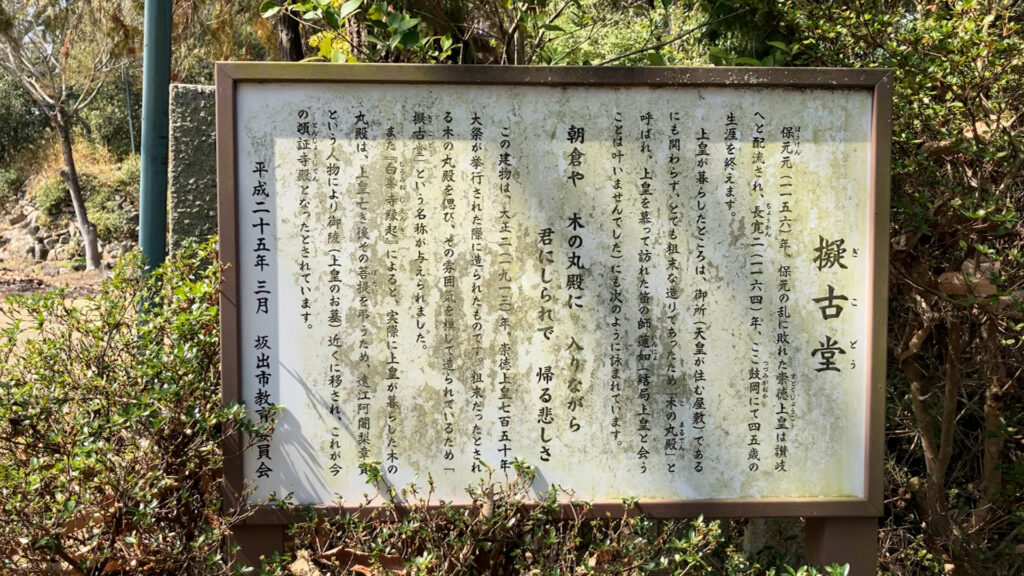 擬古堂
ぎこどう
保元元(一一五六)年、保元の乱に敗れた崇徳上皇は讃岐
へと配流され、長寛二(一一六四)年、ここ鼓岡にて四五歳の
生涯を終えます。
上皇が暮らしたところは、御所(天皇が住む屋敷)である
にも関わらず、とても粗末な造りであったため「木の丸殿」と
呼ばれ、上皇を慕って訪れた笛の師蓮如(結局上皇と会う
ことは叶いませんでした)にも次のように詠まれています。
朝倉や 木の丸殿に 入りながら
君にしられで 帰る悲しさ
この建物は、大正二(一九一三)年、崇徳上皇七百五十年
大祭が挙行された際に造られたものです。粗末だったとされ
る木の丸殿を偲び、その雰囲気を模して造られているため「
擬古堂」という名称が与えられました。
また『白峯寺縁起』によると、実際に上皇が暮らした木の
丸殿は、上皇亡き後その菩提を弔うため、遠江阿闍梨章實
という人物により御陵(上皇のお墓)近くに移され、これが今
の頓証寺殿となったとされています。
平成二十五年 三月 坂出市教育委員会